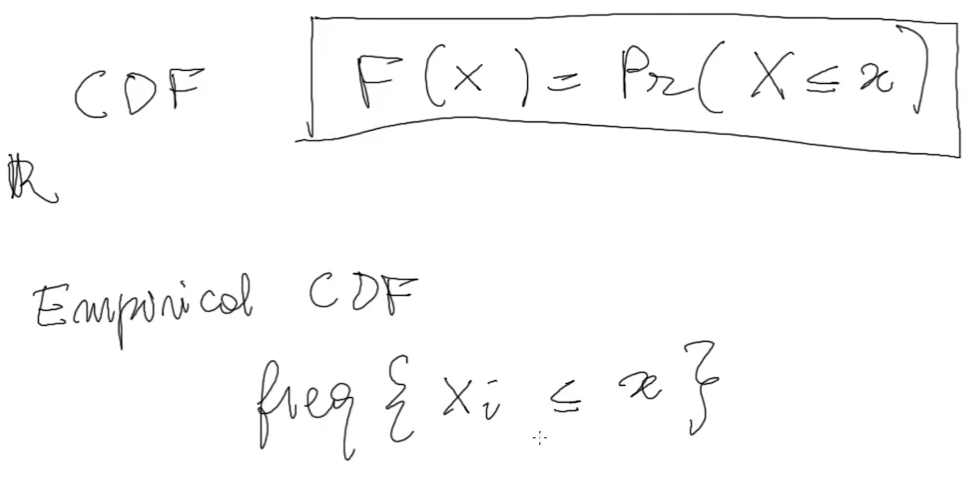 CDF F(x) = Pr(X ≤ x)
R
Emporical CDF
freq { Xi ≤ x }